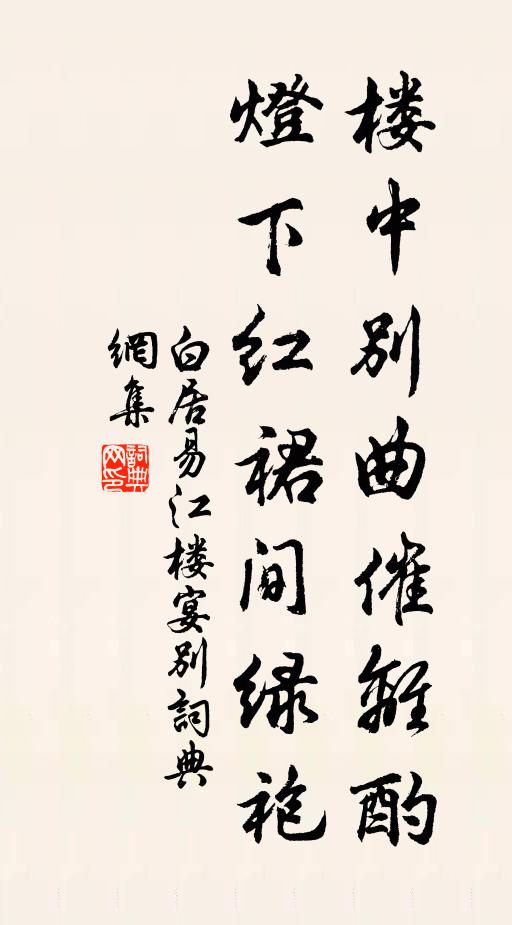 楼中别曲催離酌
燈下红裙间绿袍
白居易江楼宴别詞典
網集
詞典
网印